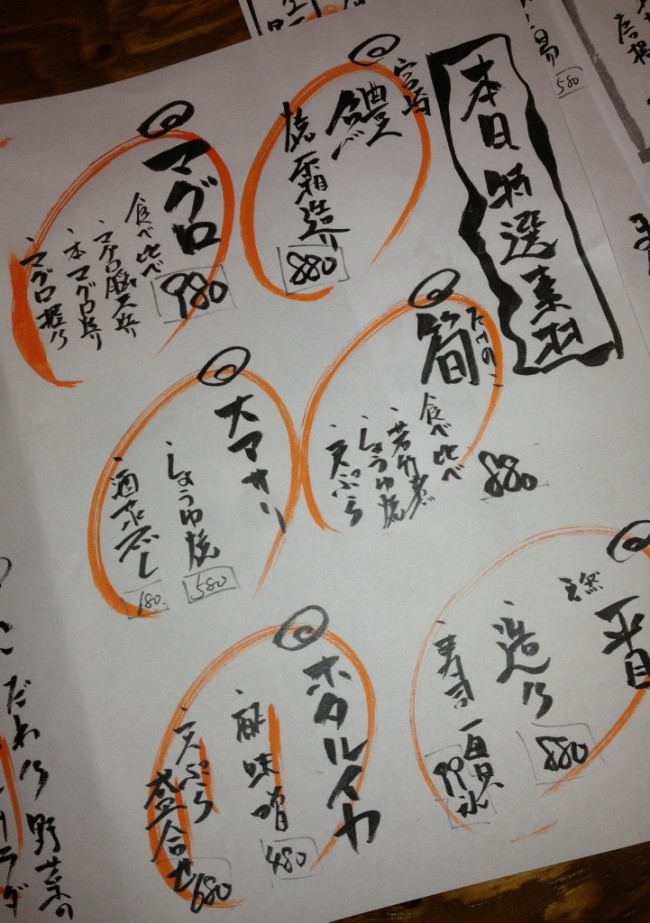 本日特選素材
宮崎
鰹
焼霜造り
880
マグロ
食べ比べ
980
マグロ握り
たけのこ
筍
食べ比べ
・若竹煮
・しょうゆ焼
・天ぷら
880
大アサリ
・しょうゆ焼
580
・酒蒸し
天然
平目
・造り
880
・寿司一貫
ホタルイカ
・酢味噌
480
・天ぷら
盛合せ
680
こだわり野菜の
580